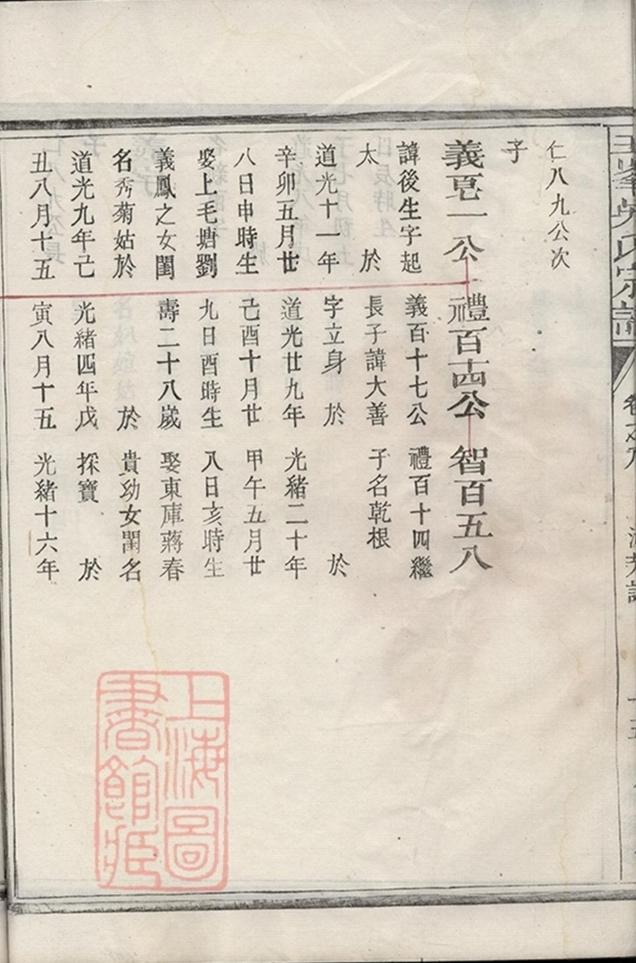 仁八九公次
子
義百一公
諱後生字起
太 於
道光十一年
辛卯五月廿
八日申時生
娶上毛塘劉
義鳳之女閨
名秀菊姑於
道光九年己
丑八月十五
禮百十四公
義百十七公
長子諱大善
字立身 於
道光廿九年
己酉十月廿
九日酉時生
壽二十八歲
於
光緒四年戊
寅八月十五
智百五八
禮百十四繼
子名乾根
於
光緒二十年
甲午五月廿
八日亥時生
娶東庫蔣春
貴幼女閨名
採寶 於
光緒十六年
上海圖
書館藏